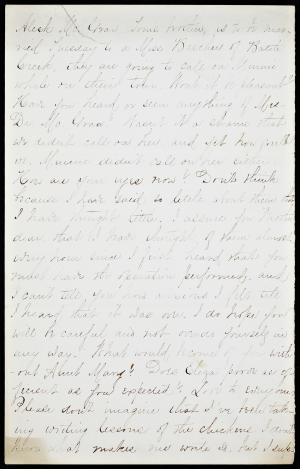 Aleck Mc Graw, Louis brother, is to be mar-
ried Tuesday to a Miss Beecher of Battle
Creek, they are going to call on Minnie
while on their tour. Wont it be pleasant?
Have you heard or seen anything of Mrs
Dr. Mc Graw? Wasn't it a shame that
we didnt call on her and
Minnie didn't call on her either.
How are your eyes now? Don't think
because I have said so little about them that
I have thought little. I assure you Mother
dear, that I have thought of them almost
every hour since I first heard that you
must have the operation performed, and
I can't tell you how anxious I felt till
I heard that it was over. I do hope you
will be careful and not overdo yourself in
any way. What would become of you with-
out Aunt Mary? Does Eliza prove as ef-
ficient as you expected? Love to everyone.
Please don't imagine that I've been tak-
ing writing lessons of the chickens. I don't
know what makes me write so, but I